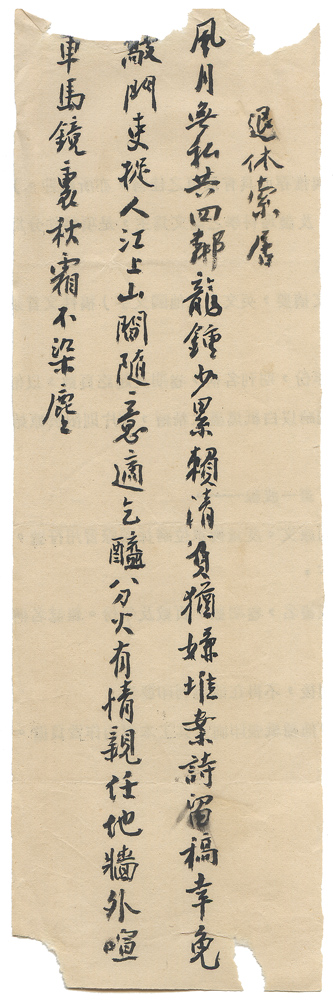 退休索居
風月無私共四鄰龍鍾少累賴清貧猶嫌堆案詩留稿幸免
敲門吏捉人江上山間隨意適乞醯分火有情親任他牆外喧
車馬鏡裏秋霜不染塵